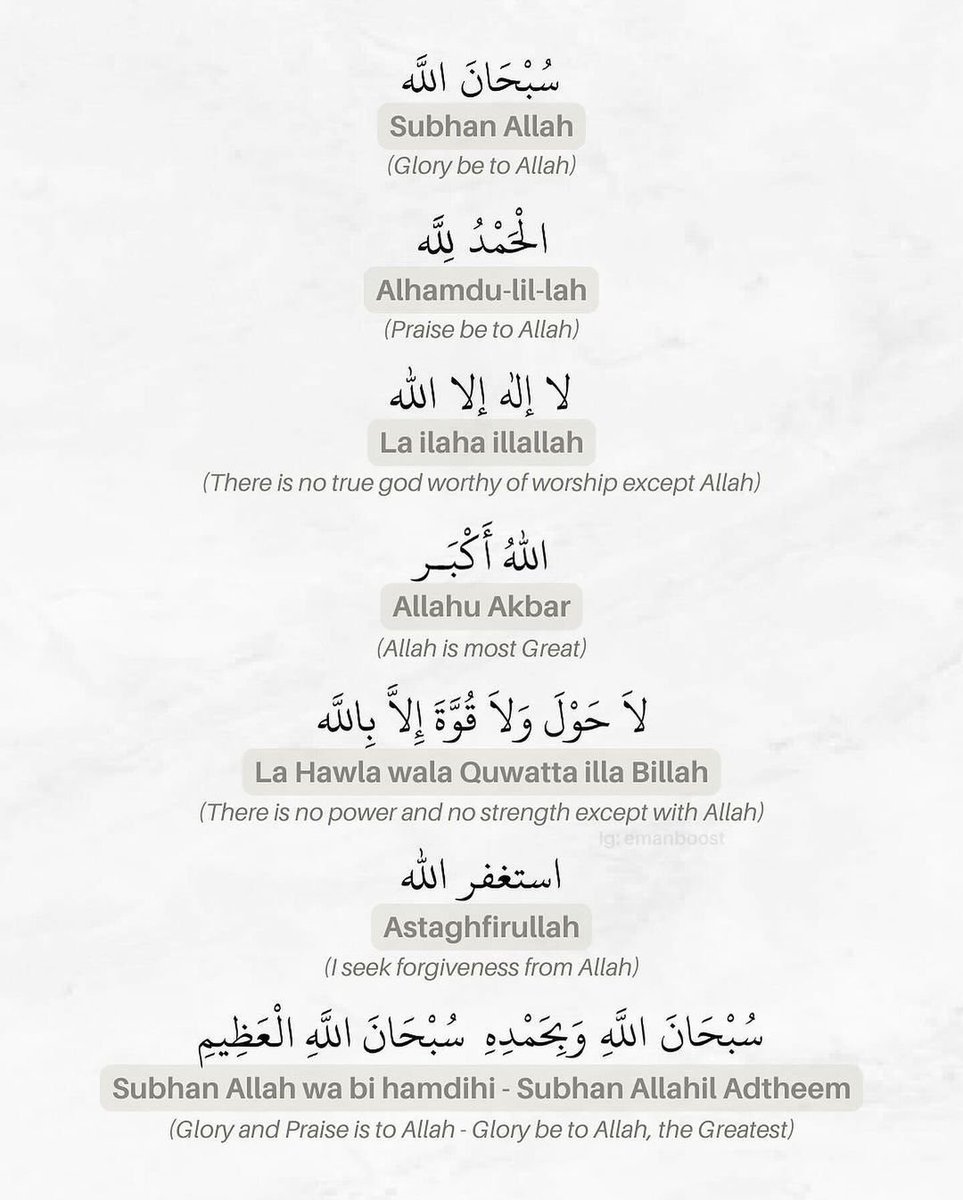 سُبْحَانَ اللَّه
Subhan Allah
(Glory be to Allah)
الْحَمْدُ لِلَّه
Alhamdu-lil-lah
(Praise be to Allah)
لا إله إلا الله
La ilaha illallah
(There is no true god worthy of worship except Allah)
اللهُ أَكْبَــر
Allahu Akbar
(Allah is most Great)
لاَ حَوْلَ وَلاَ قُوَّةَ إِلاَّ بِاللَّه
La Hawla wala Quwatta illa Billah
(There is no power and no strength except with Allah)
Ig: emanboost
استغفر الله
Astaghfirullah
(I seek forgiveness from Allah)
سُبْحَانَ اللَّهِ وَبِحَمْدِهِ سُبْحَانَ اللَّهِ الْعَظِيمِ
Subhan Allah wa bi hamdihi - Subhan Allahil Adtheem
(Glory and Praise is to Allah - Glory be to Allah, the Greatest)